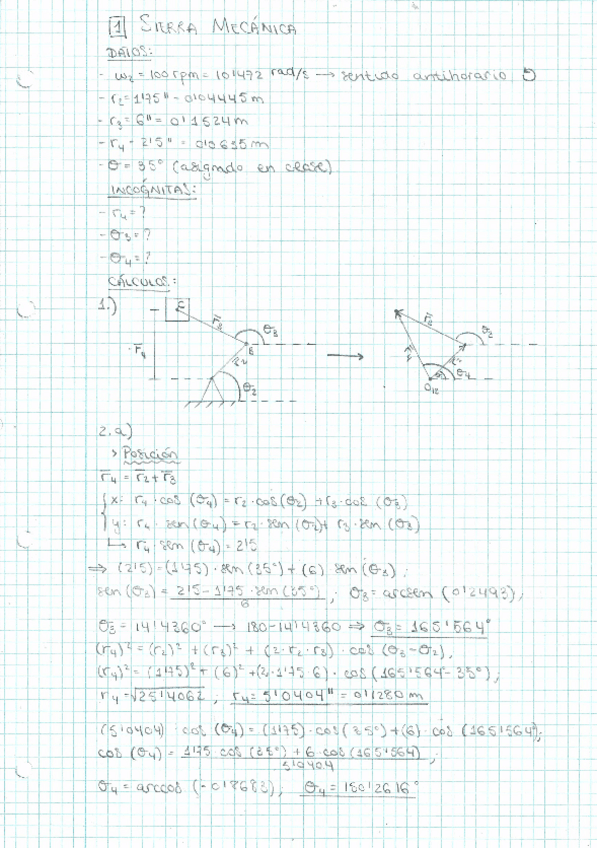 1 SIERRA MECÁNICA
DATOS:
- ω₂ = 100 rpm = 10'472 rad/s → sentido antihorario ↺
- r₂ = 1'75" - 0'04445 m
- r₃ = 6" = 0'1524 m
- r₄ - 2'5" = 0'0635 m
- θ = 35° (asignado en clase)
INCÓGNITAS:
- r₄ = ?
- θ₃ = ?
- θ₄ = ?
CÁLCULOS:
1.)
r̄₃ θ₃
r̄₄
r₂
θ₂
r̄₃ θ₃
r₂ θ₄
2.a)
> Posición
r̄₄ = r̄₂ + r̄₃
{ x: r₄ · cos (θ₄) = r₂ · cos(θ₂) + r₃ · cos (θ₃)
{ y: r₄ · sen (θ₄) = r₂ · sen (θ₂) + r₃ · sen (θ₃)
↳ r₄ · sen (θ₄) = 2'5
⇒ (2'5) = (1'75) · sen (35°) + (6) sen (θ₃);
sen (θ₃) = 2'5 - 1'75 · sen (35°) / 6 ; θ₃ = arcsen (0'2493);
θ₃ = 14'4360° → 180 - 14'4360 ⇒ θ₃ = 165'564°
(r₄)² = (r₂)² + (r₃)² + (2 · r₂ · r₃) · cos (θ₃ - θ₂);
(r₄)² = (1'75)² + (6)² + (2 · 1'75 · 6) · cos (165'564° - 35°);
r₄ = √25'4062 ; r₄ = 5'0404" = 0'1280 m
(5'0404) · cos (θ₄) = (1'75) · cos (35°) + (6) · cos (165'564);
cos (θ₄) = 1'75 cos (35°) + 6 cos (165'564) / 5'0404 ;
θ₄ = arccos (-0'8683); θ₄ = 150'2616°